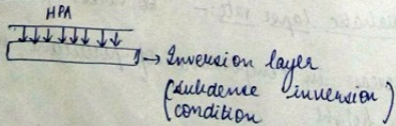 HPA
Inversion layer
(subdence inversion)
(condition